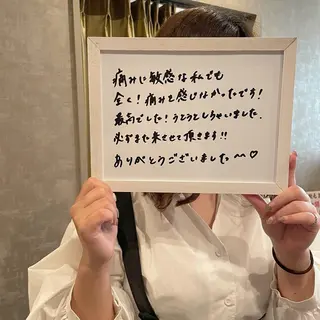 痛みに敏感な私でも
全く！痛みを感じなかったです！
最高でした！うとうとしちゃいました、
必ずまた来させて頂きます!!
ありがとうございました〜♡